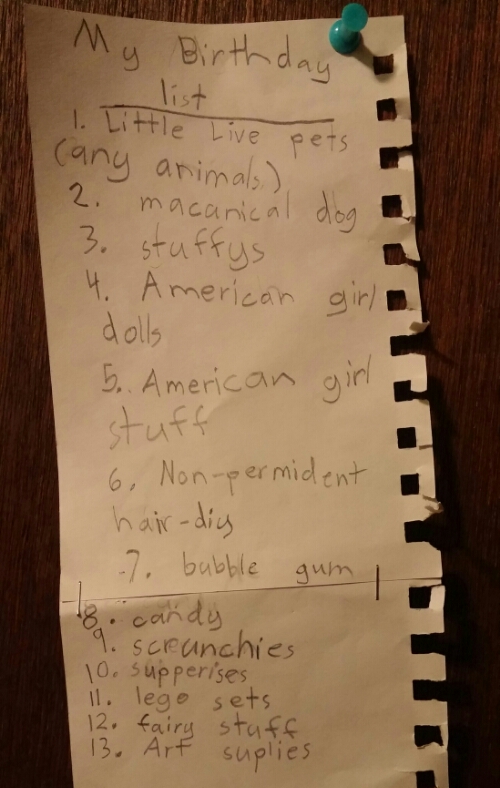 My Birthday
list
1. Little Live pets
(any animals.)
2. macanical dog
3. stuffys
4. American girl
dolls
5. American girl
stuff
6. Non-permident
hair-diy
7. bubble gum
8. candy
9. scrunchies
10. supperises
11. lego sets
12. fairy stuff
13. Art suplies